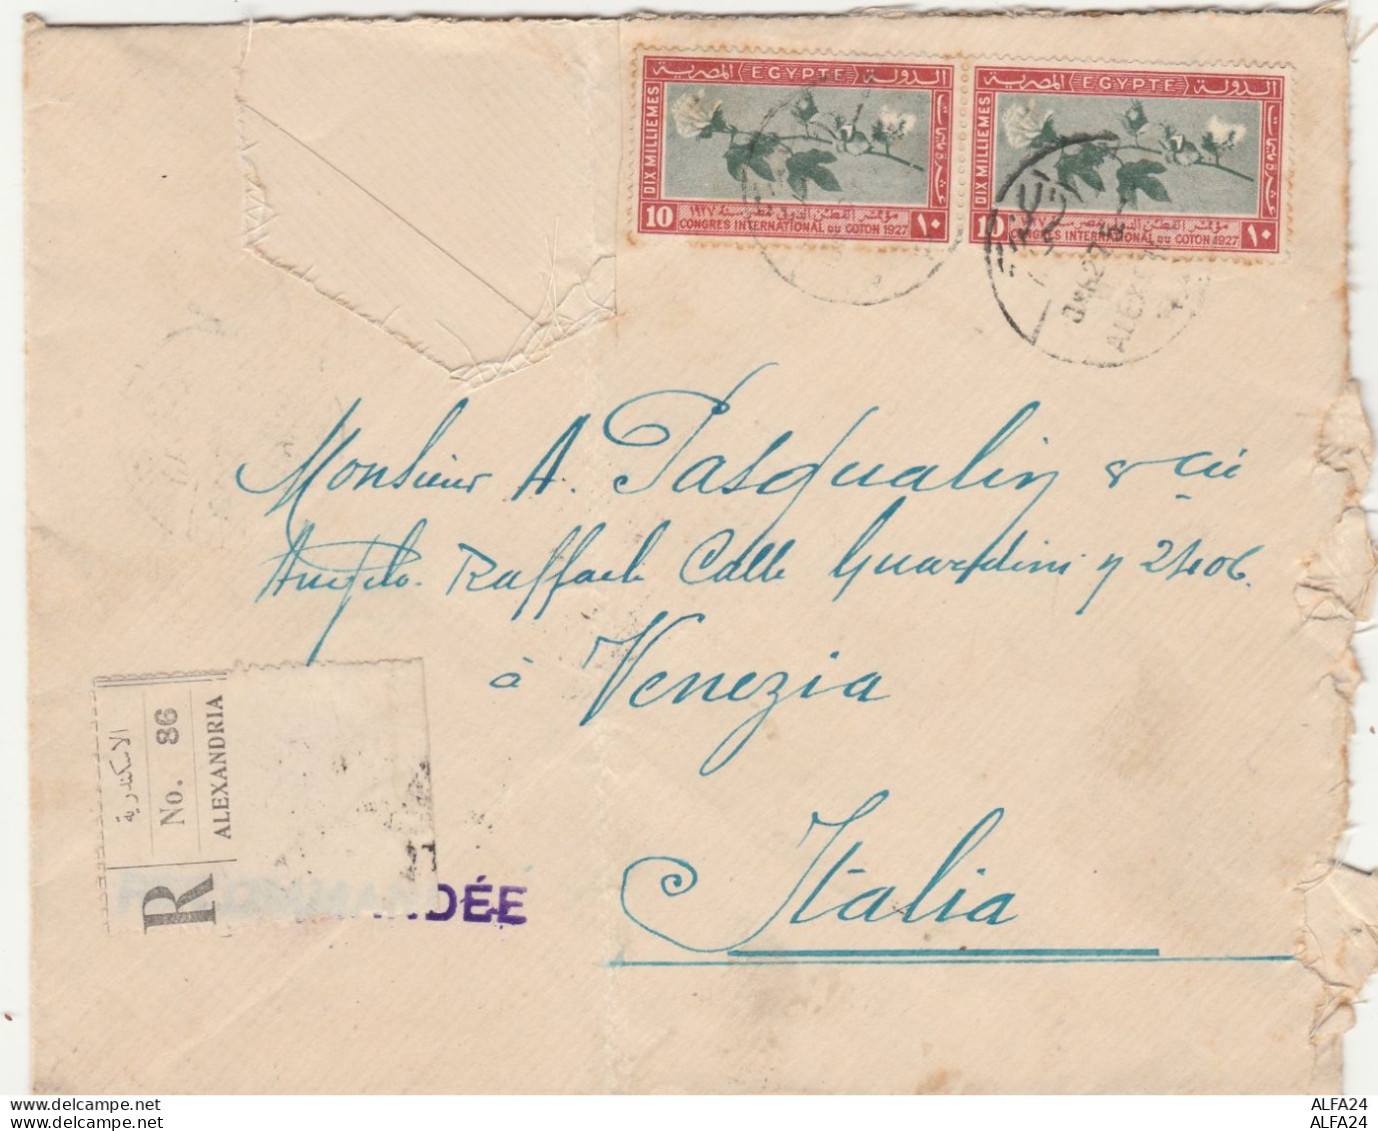 الدولة EGYPTE المصرية
DIX MILLIEMES
مؤتمر القطن الدولي بمصر سنة ١٩٢٧
10 CONGRES INTERNATIONAL DU COTON 1927 ١٠
الدولة EGYPTE المصرية
DIX MILLIEMES
10 CONGRES INTERNATIONAL DU COTON 1927 ١٠
Monsieur A. Pasqualin & Cie
Angelo Raffaele Calle Guardini
à Venezia
Italia
R
الاسكندرية
No. 86
ALEXANDRIA
DÉE
www.delcampe.net
www.delcampe.net
ALFA24
ALFA24